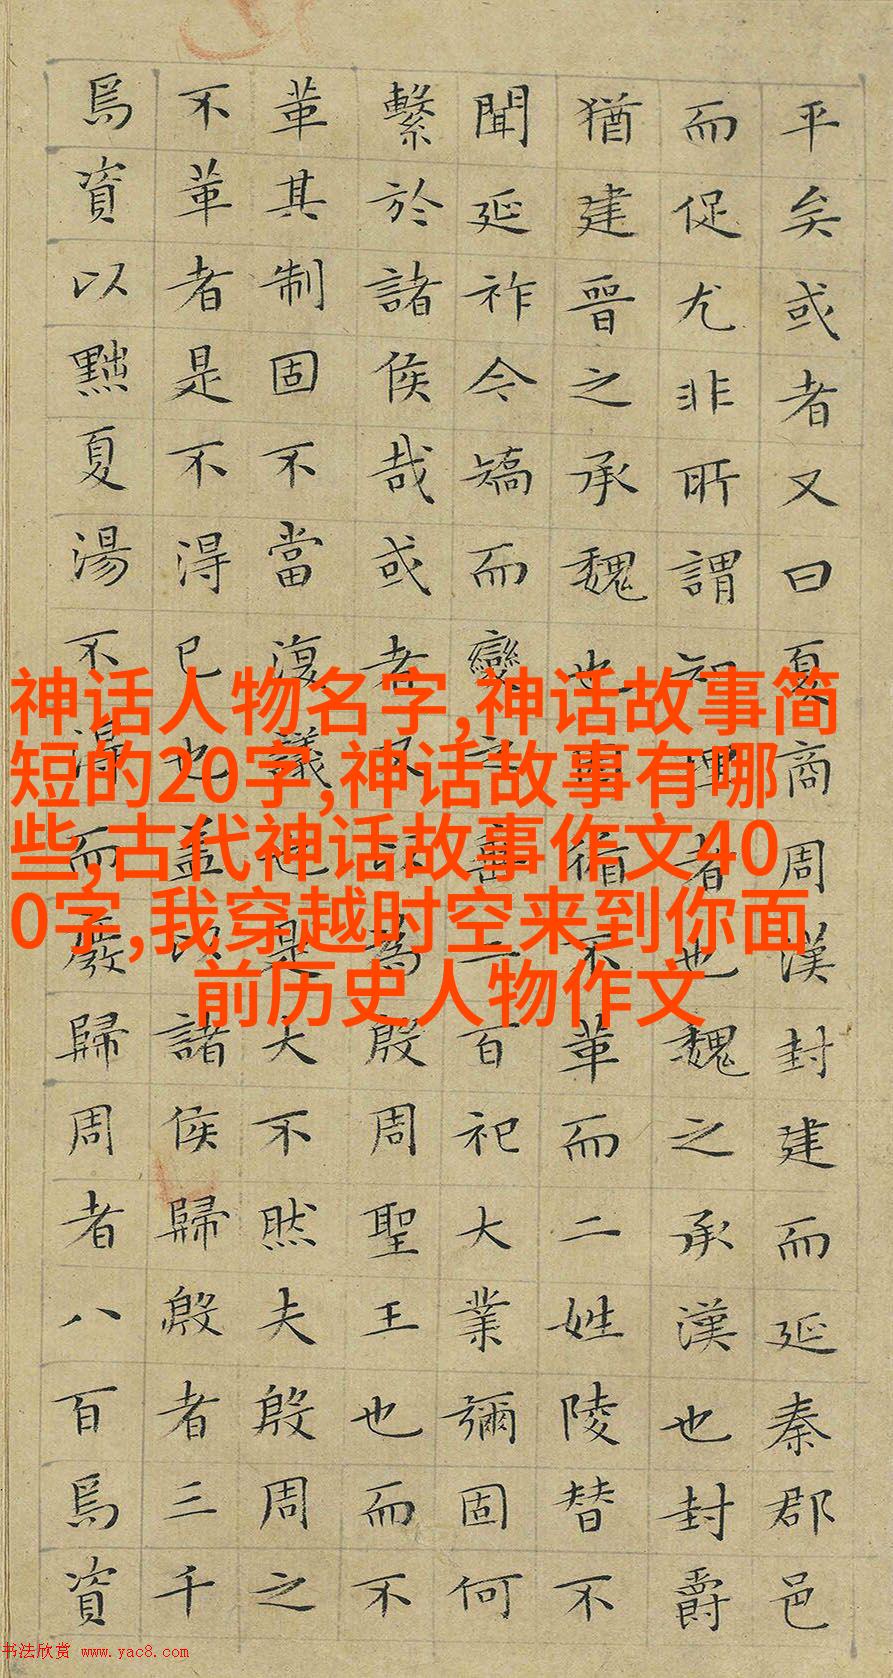 平矣或者又曰夏商周漢封建而延秦郡邑
而促尤非所謂知理者也魏之承漢也封爵
猶建晉之承魏也因循不革而二姓陵替不
聞延祚今矯而變之垂二百祀大業彌固何
繫於諸侯哉或者又以為殷周聖王也而不
革其制固不當復議也是大不然夫殷周之
不革者是不得已也盖以諸侯歸殷者三千
焉資以黜夏湯不得而廢歸周者八百焉資
神话人物名字,神话故事简
短的20字,神话故事有哪
些,古代神话故事作文40
0字,我穿越时空来到你面
前历史人物作文
书法欣赏 www.yac8.com